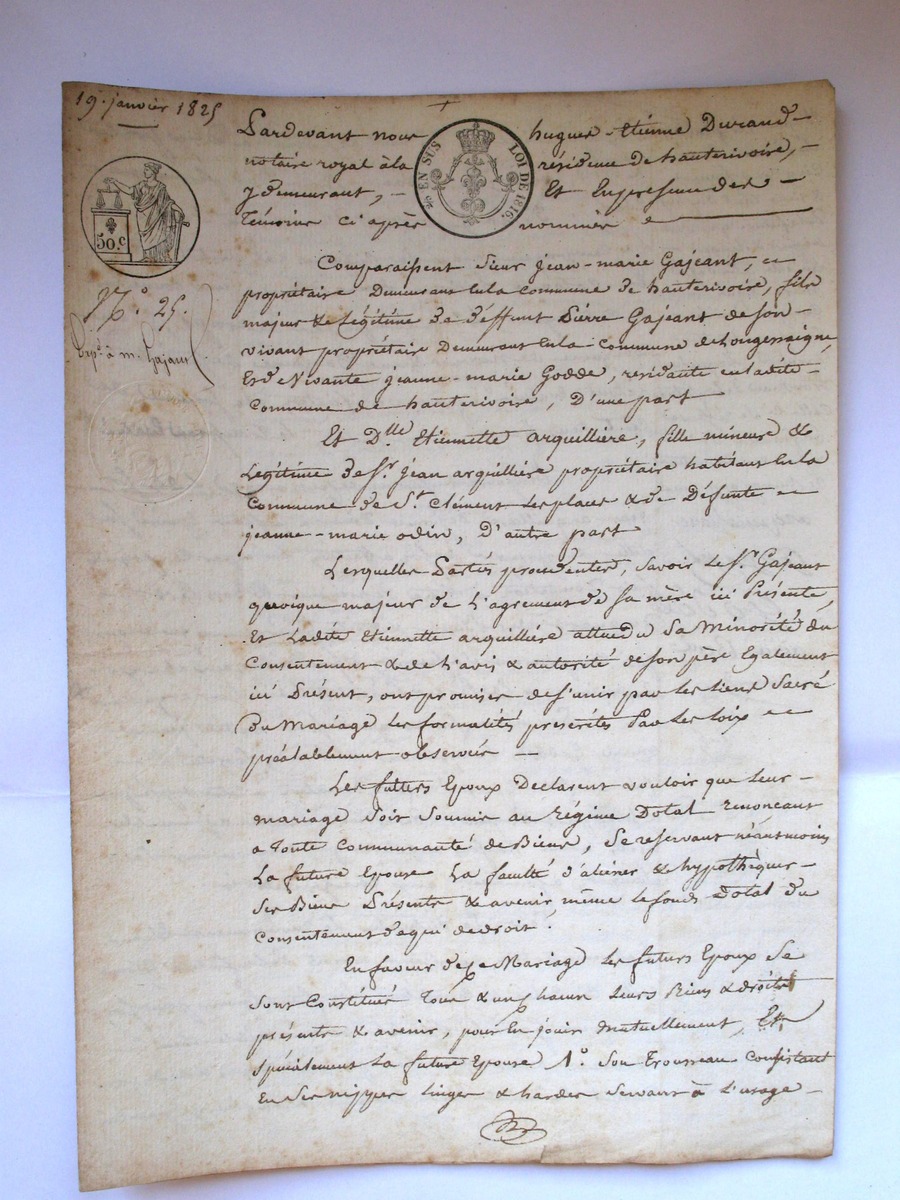 19. janvier 1825
Pardevant nous hugues-Etienne Durand-
notaire royal à la résidence de hauterivoire,-
y demeurant, - Et En presence des -
Témoins ci après nommés
EN SUS LOI DE 1816.
50.c
N.° 25.
Exp.° à m. Gajeant
Comparaissent Sieur jean-marie Gajeant,
propriétaire Demeurant En la Commune de hauterivoire, fils
majeur & Légitime de deffunt Pierre Gajeant de son
vivant propriétaire Demeurant En la Commune de Longessaigne,
Et de Vivante jeanne-marie Godde, residante en ladite
Commune de hauterivoire, D'une part
Et D.lle Etiennette arquilliere, fille mineure &
Légitime de S.r jean arquillière propriétaire habitant En la
Commune de S.t Clément Les places & de Défunte
jeanne-marie odin, D'autre part
Lesquelles Parties procedentes, Savoir Le S.r Gajeant
quoique majeur de L'agrement de Sa mère ici Présente,
Et Ladite Etiennette arquillière attendu Sa Minorité du
Consentement & de L'avis & autorité de Son père Egalement
ici Présent, ont promises de S'unir par Les Liens Sacré
Du Mariage Les formalités prescrites Par Les Loix
préalablement observées
Les futurs Epoux Declarent vouloir que Leur-
mariage Soit Soumis au Régime Dotal renoncant
a Toute Communauté de Biens, Se reservant néantmoins
La future Epouse La faculté d'aliéner & hypothèquer-
Ses Biens Présents & avenir, même Le fonds Dotal du
Consentement de qui de droit.
En faveur de Ce Mariage Les futurs Epoux Se
Sont Constitués Tous & un chacun Leurs Biens & droits
présents & avenir, pour En jouir mutuellement, Et
Spécialement La future Epouse 1.° Son Trousseau Consistant
En Ses nippes Linges & hardes Servant à L'usage -